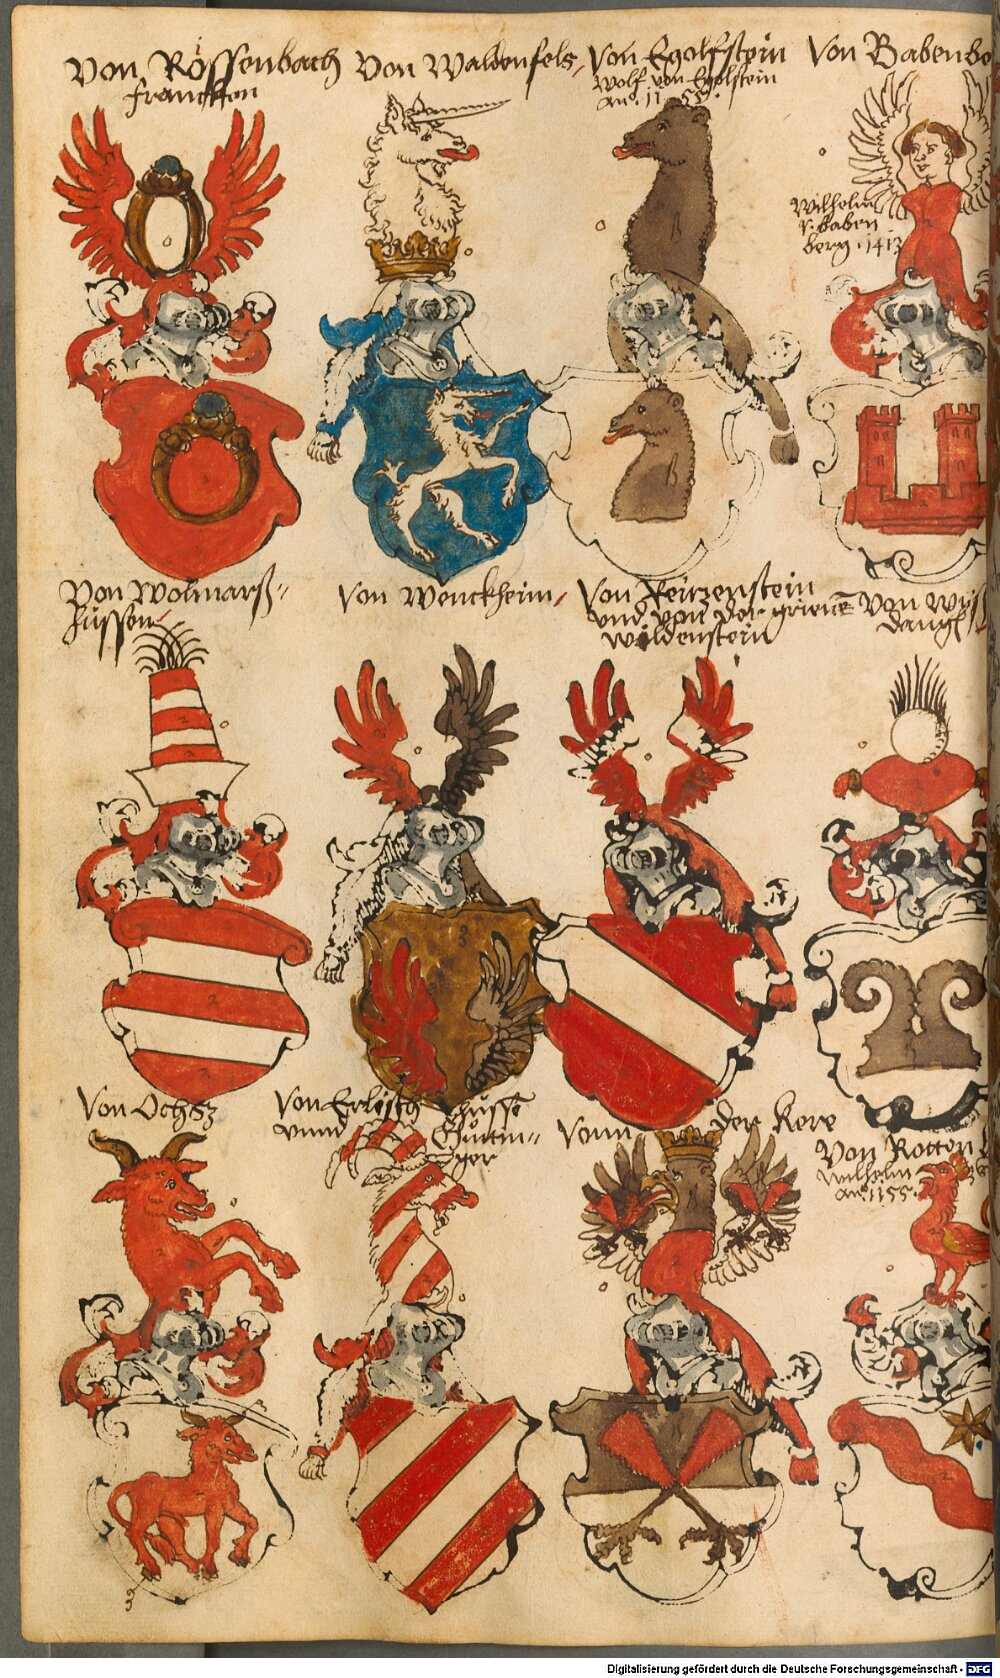 Von Rössenbach
franckhen
Von Waldenfels,
Von Egolfstein
Wolf von Egolstein
an̄o. 1155.
Von Babenbe
Wilhelm
v. baben
berg. 1413
Von Wolmarß-
hussen.
Von Wenckheim,
Von Reitzenstein
vnd von der grienē
wildenstein
Von
Von Ochß
Von Erlisth hussē
vnnd
ger
Vonn der Kere
Von Rotten
Wilhelm
an̄o. 1155.
Digitalisierung gefördert durch die Deutsche Forschungsgemeinschaft - DFG